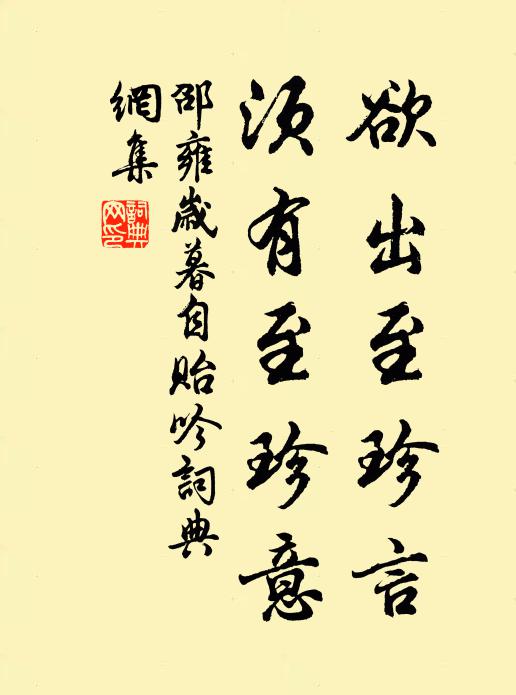 欲出至珍言
須有至珍意
邵雍歲暮自貽吟詞典
網集
詞典
网印